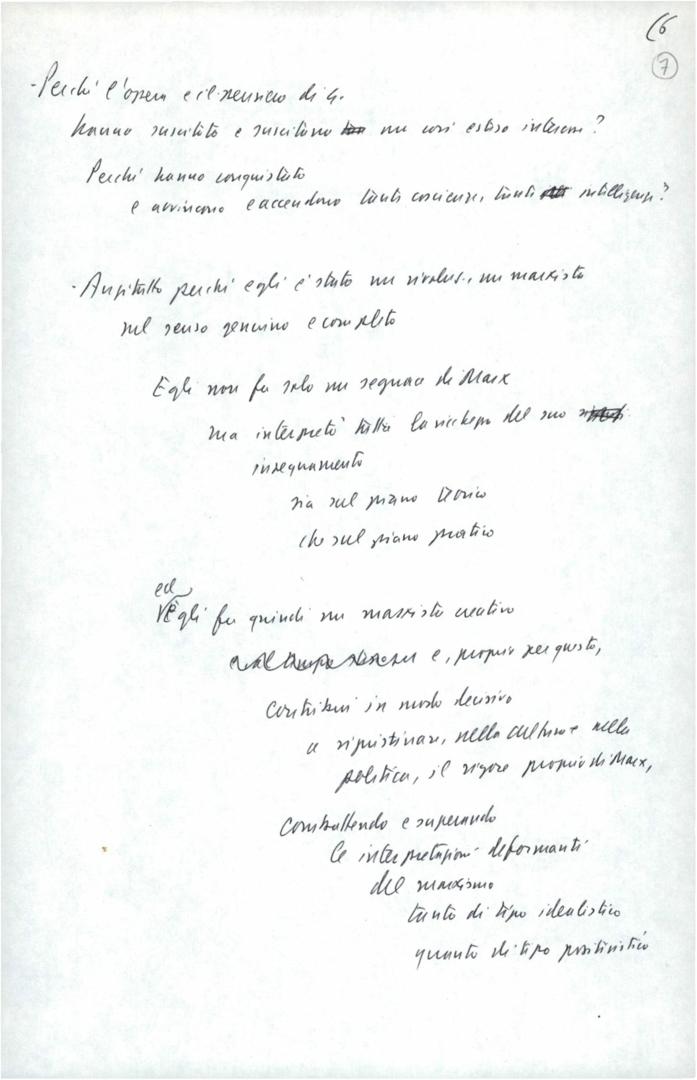 6
7
- Perché l'opera e il pensiero di G.
hanno suscitato e suscitano un così esteso interesse?
Perché hanno conquistato
e avvincono e accendono tante coscienze, tante intelligenze?
- Anzitutto perché egli è stato un rivoluz., un marxista
nel senso genuino e completo
Egli non fu solo un seguace di Marx
ma interpretò tutta la ricchezza del suo
insegnamento
sia sul piano teorico
che sul piano pratico
ed
Egli fu quindi un marxista creativo
e, proprio per questo,
contribuì in modo decisivo
a ripristinare, nella cultura e nella
politica, il rigore proprio di Marx,
combattendo e superando
le interpretazioni deformanti
del marxismo
tanto di tipo idealistico
quanto di tipo positivistico